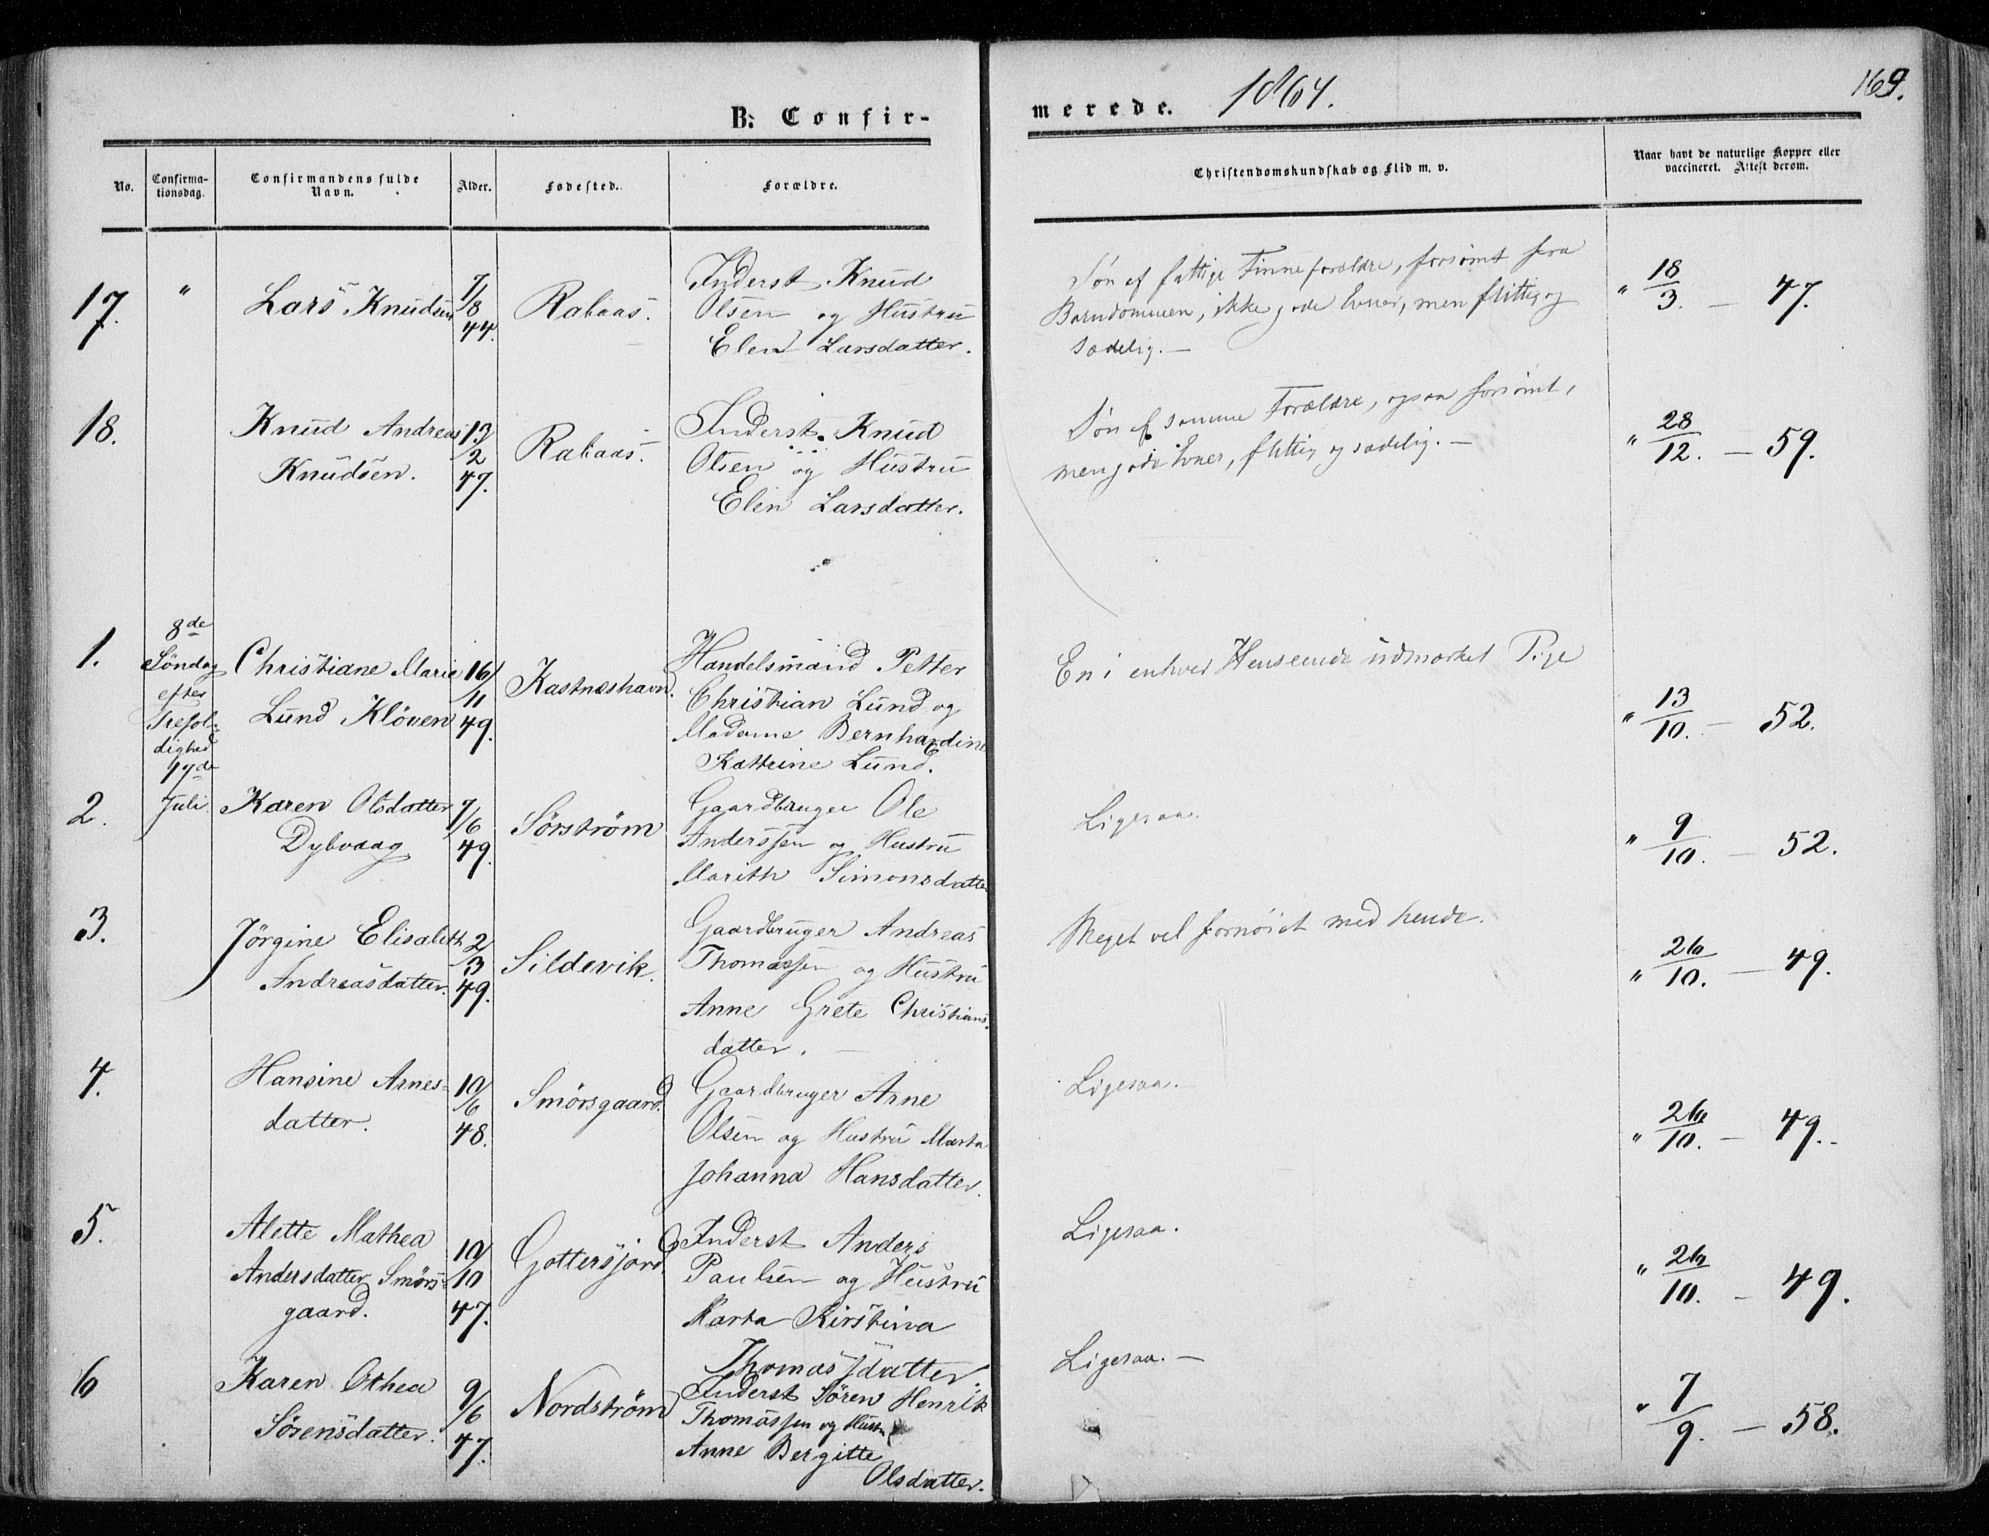 B: Confir-
merede. 1864.
169.
No.
Confirma-
tionsdag.
Confirmandens fulde
Navn.
Alder.
Fødested.
Forældre.
Christendomskundskab og Flid m. v.
Naar havt de naturlige Kopper eller
vaccineret. Attest derom.
17. " Lars Knudsen 7/8 44. Rabaas.
Inderst Knud
Olsen og Hustru
Elen Larsdatter.
Søn af fattige Finneforældre, forsømt fra
Barndommen, ikke gode Evner, men flittig og
sædelig. —
" 18/3. — 47.
18. Knud Andreas
Knudsen. 13/2 47. Rabaas.
Inderst Knud
Olsen og Hustru
Elen Larsdatter.
Søn af samme Forældre, ogsaa forsømt,
men gode Evner, flittig og sædelig. —
" 28/12. — 59.
1. 8de
Søndag
efter
Trefol-
dighed
17de
Juli.
Christiane Marie
Lund Klöven 16/11 49. Kastnæshavn.
Handelsmand Petter
Christian Lund og
Madame Bernhardine
Kattrine Lund.
En i enhver Henseende udmærket Pige
" 13/10. — 52.
2. Karen Olsdatter
Dybvaag 7/6 49. Sörström
Gaardbruger Ole
Anderssen og Hustru
Marith Simonsdatter
Ligesaa.
" 9/10. — 52.
3. Jörgine Elisabeth
Andreasdatter. 2/3 49. Sildevik.
Gaardbruger Andreas
Thomassen og Hustru
Anne Grete Christians-
datter. —
Meget vel fornøiet med hende.
" 26/10. — 49.
4. Hansine Arnes-
datter. 10/6 48. Smörsgaard.
Gaardbruger Arne
Olsen og Hustru Marta
Johanna Hansdatter.
Ligesaa. —
" 26/10. — 49.-
5. Alette Mathea
Andersdatter Smörs-
gaard. 10/10 47. Gottersjord.
Inderst Anders
Paulsen og Hustru
Marta Kirstina
Thomasdatter.
Ligesaa.
" 26/10. — 49.
6 Karen Othea
Sörensdatter. 9/6 47. Nordström
Inderst Sören Henrik
Thomassen og Hustru
Anne Bergitte
Olsdatter.
Ligesaa. —
" 7/9. — 58.